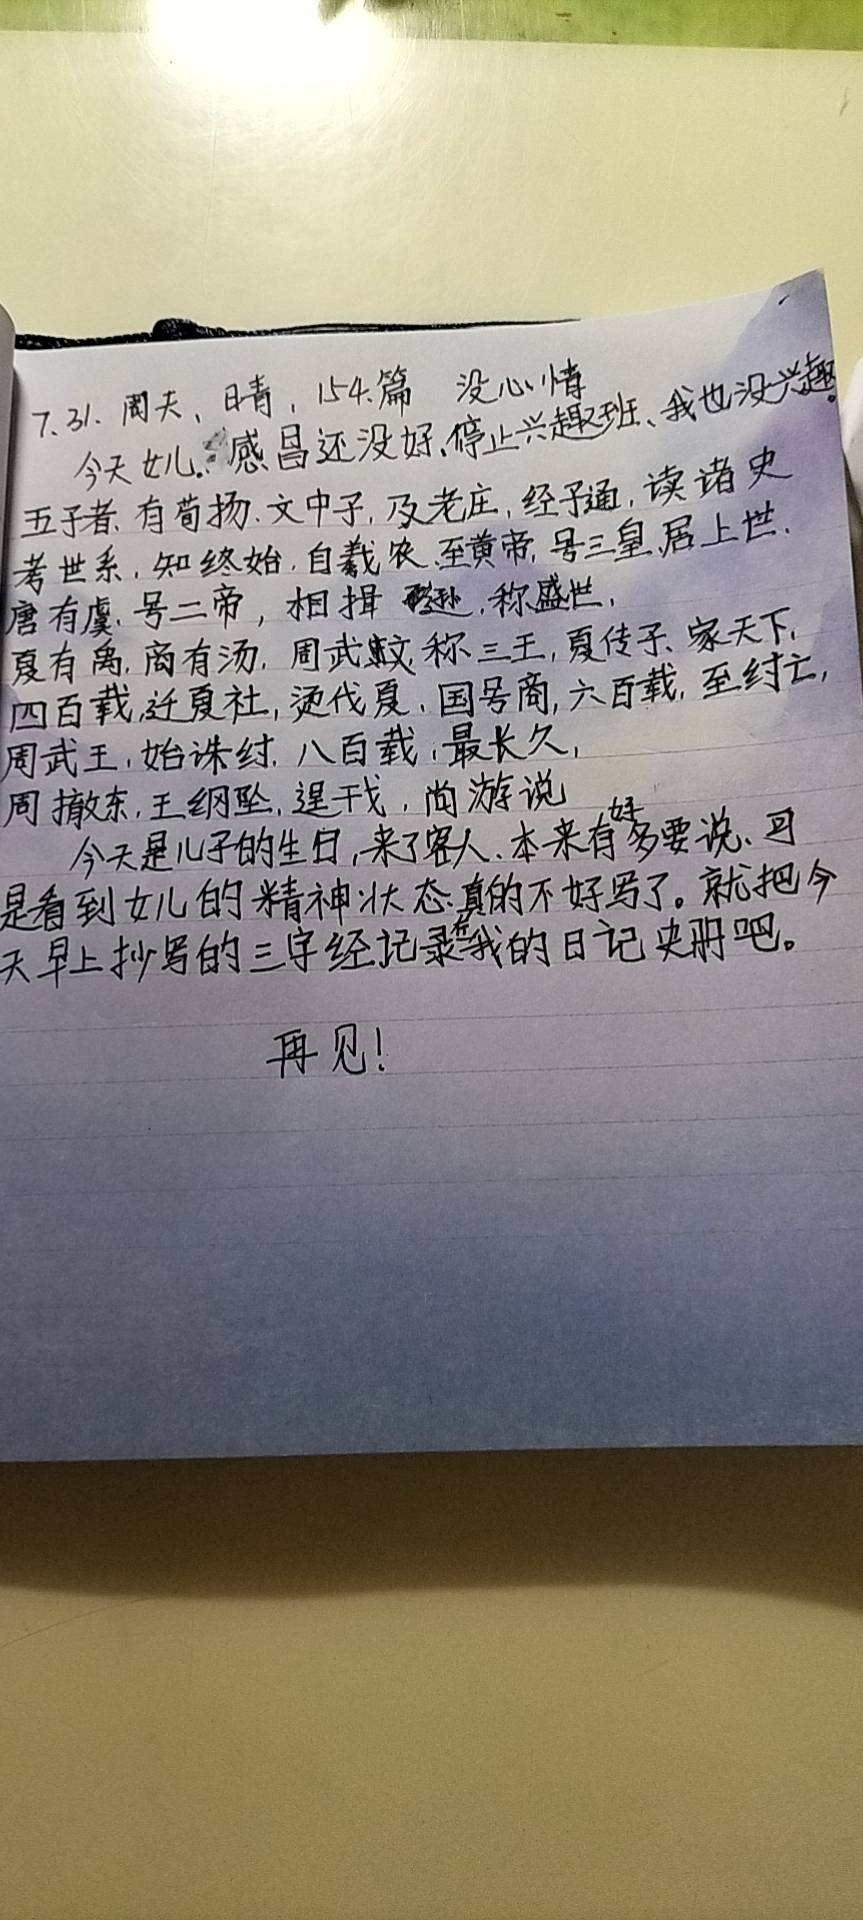 7.31. 周天、晴，154.篇 没心情
今天女儿感昌还没好、停止兴趣班、我也没兴趣。
五子者、有荀扬、文中子，及老庄，经子通，读诸史
考世系，知终始，自羲农、至黄帝，号三皇、居上世、
唐有虞、号二帝，相揖 ，称盛世，
夏有禹，商有汤，周武 ，称三王，夏传子、家天下，
四百载，迁夏社，汤伐夏，国号商，六百载，至纣亡，
周武王，始诛纣，八百载，最长久，
周撤东，王纲坠，逞干戈，尚游说
今天是儿子的生日，来了客人、本来有好多要说、可
是看到女儿的精神状态真的不好写了。就把今
天早上抄写的三字经记录在我的日记史册吧。
再见！